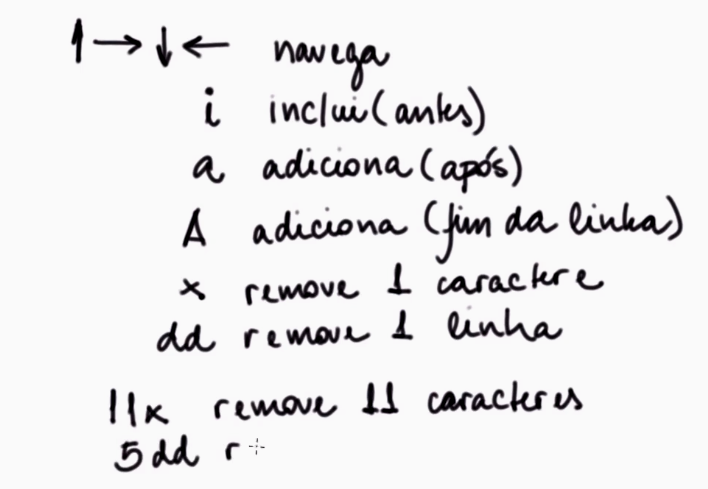 ↑→↓← navega
i inclui (antes)
a adiciona (após)
A adiciona (fim da linha)
x remove 1 caractere
dd remove 1 linha
11x remove 11 caracteres
5dd r